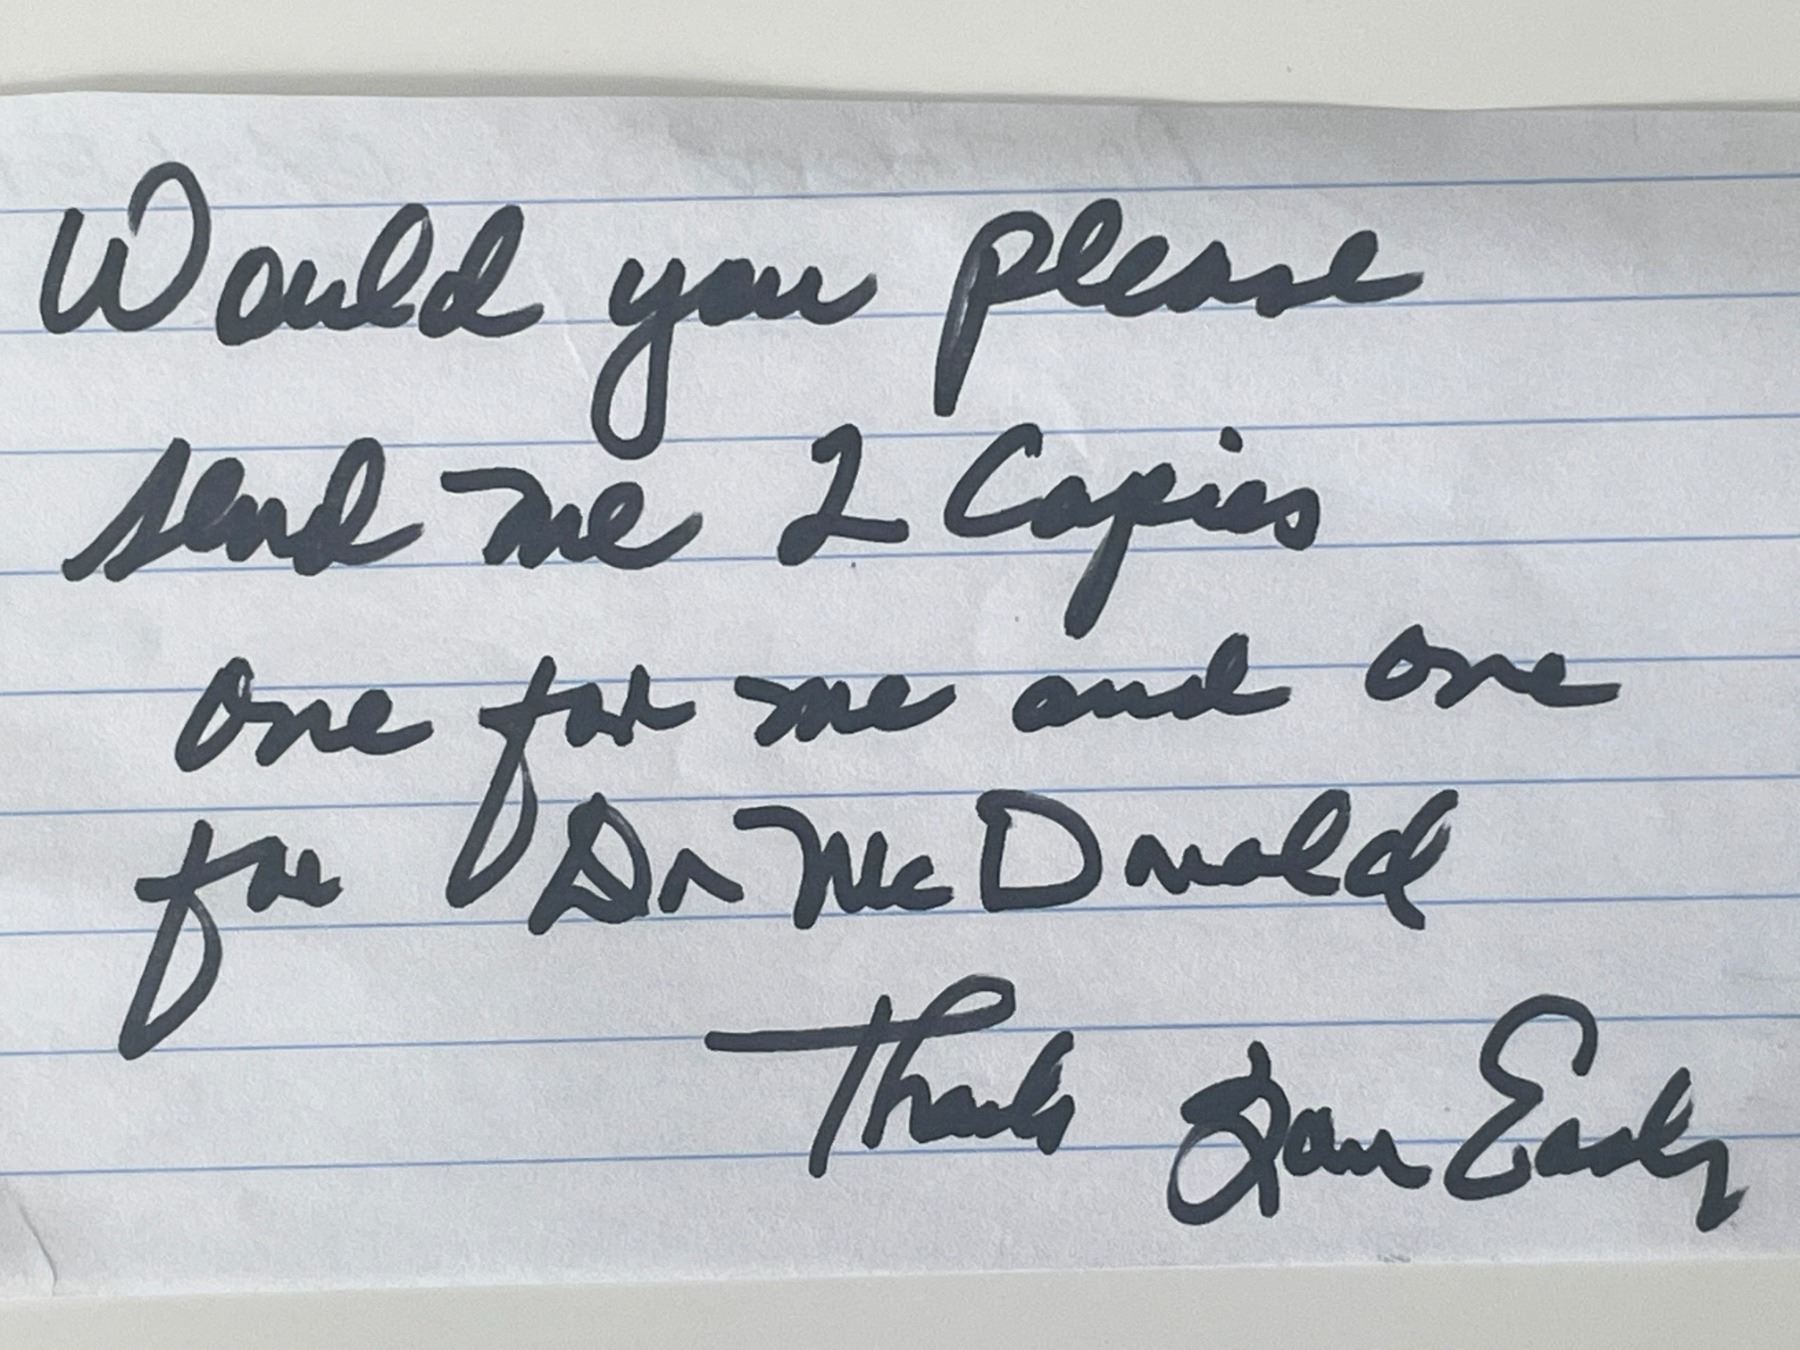 Would you please
send me 2 Copies
one for me and one
for Dr McDonald
Thanks